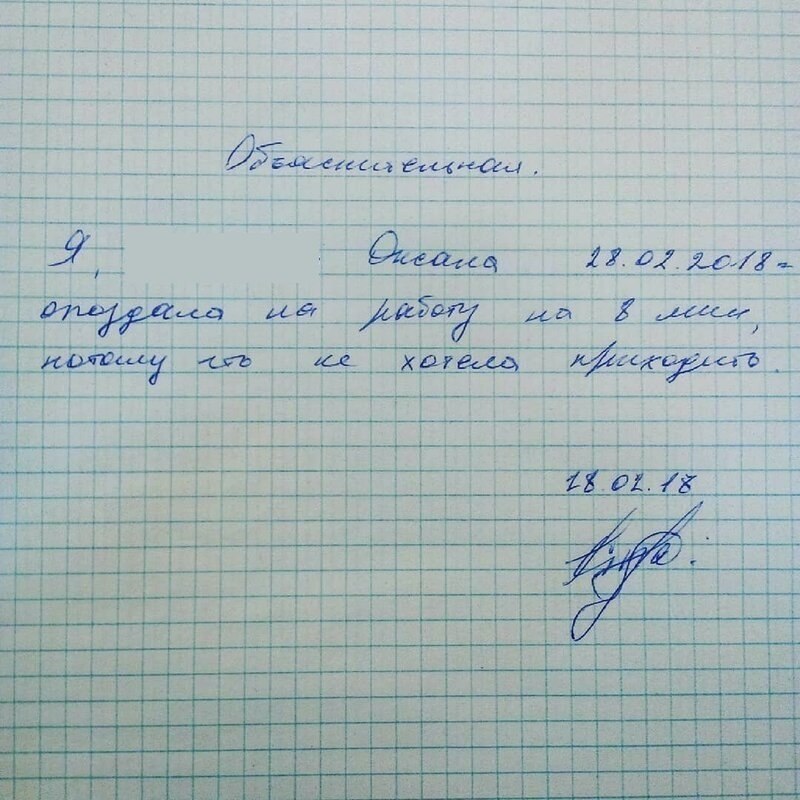 Объяснительная.
Я, Оксана 28.02.2018
опоздала на работу на 8 мин,
потому что не хотела приходить.
28.02.18